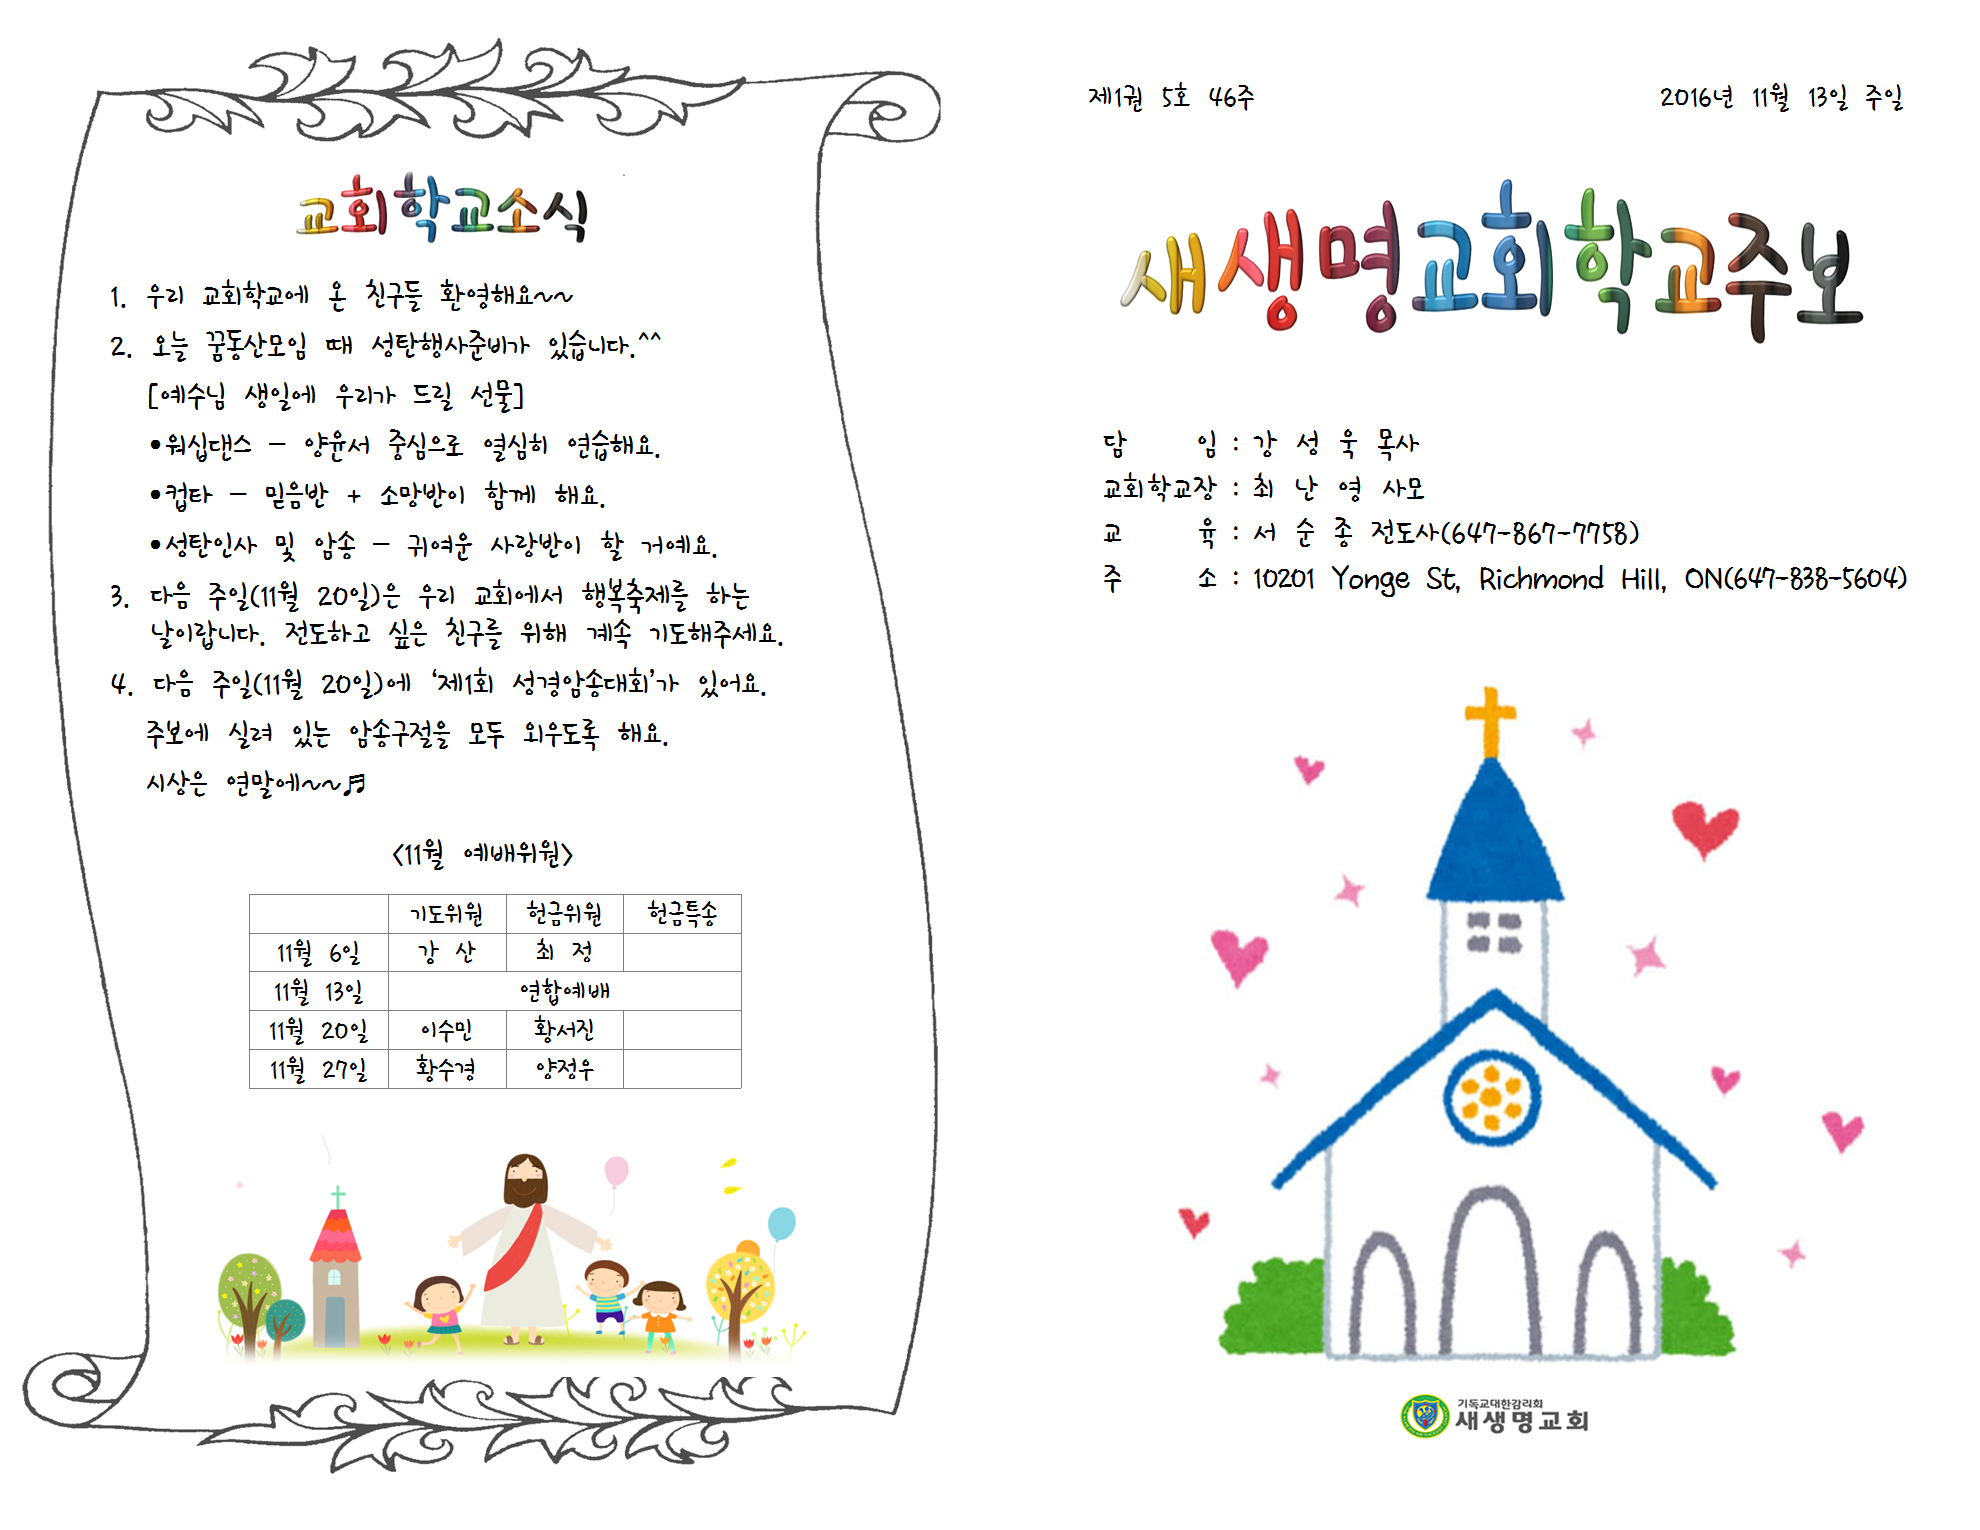 교회학교소식
1. 우리 교회학교에 온 친구들 환영해요~~
2. 오늘 꿈동산모임 때 성탄행사준비가 있습니다.^^
[예수님 생일에 우리가 드릴 선물]
•워십댄스 - 양윤서 중심으로 열심히 연습해요.
•컵타 - 믿음반 + 소망반이 함께 해요.
•성탄인사 및 암송 - 귀여운 사랑반이 할 거예요.
3. 다음 주일(11월 20일)은 우리 교회에서 행복축제를 하는
날이랍니다. 전도하고 싶은 친구를 위해 계속 기도해주세요.
4. 다음 주일(11월 20일)에 ‘제1회 성경암송대회’가 있어요.
주보에 실려 있는 암송구절을 모두 외우도록 해요.
시상은 연말에~~♬
<11월 예배위원>
기도위원 헌금위원 헌금특송
11월 6일 강 산 최 정
11월 13일 연합예배
11월 20일 이수민 황서진
11월 27일 황수경 양정우
제1권 5호 46주 2016년 11월 13일 주일
새생명교회학교주보
담 임 : 강 성 욱 목사
교회학교장 : 최 난 영 사모
교 육 : 서 순 종 전도사(647-867-7758)
주 소 : 10201 Yonge St, Richmond Hill, ON(647-838-5604)
기독교대한감리회
새생명교회